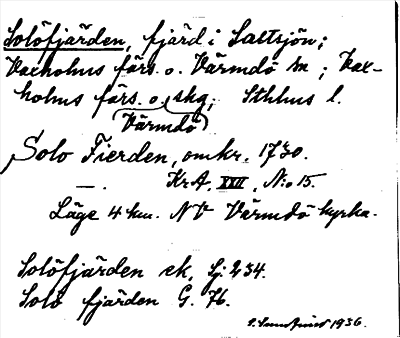 Solöfjärden, fjärd i Saltsjön;
Vaxholms förs. o. Värmdö sn; Vax-
holms förs. o. skg, Sthlms l.
Värmdö
Solo Fierden, omkr. 1730.
—. KrA, XXII, N:o 15.
Läge 4 km. NV Värmdö kyrka.
Solöfjärden ek, Sj. 234.
Solö fjärden G. 76.
1936.